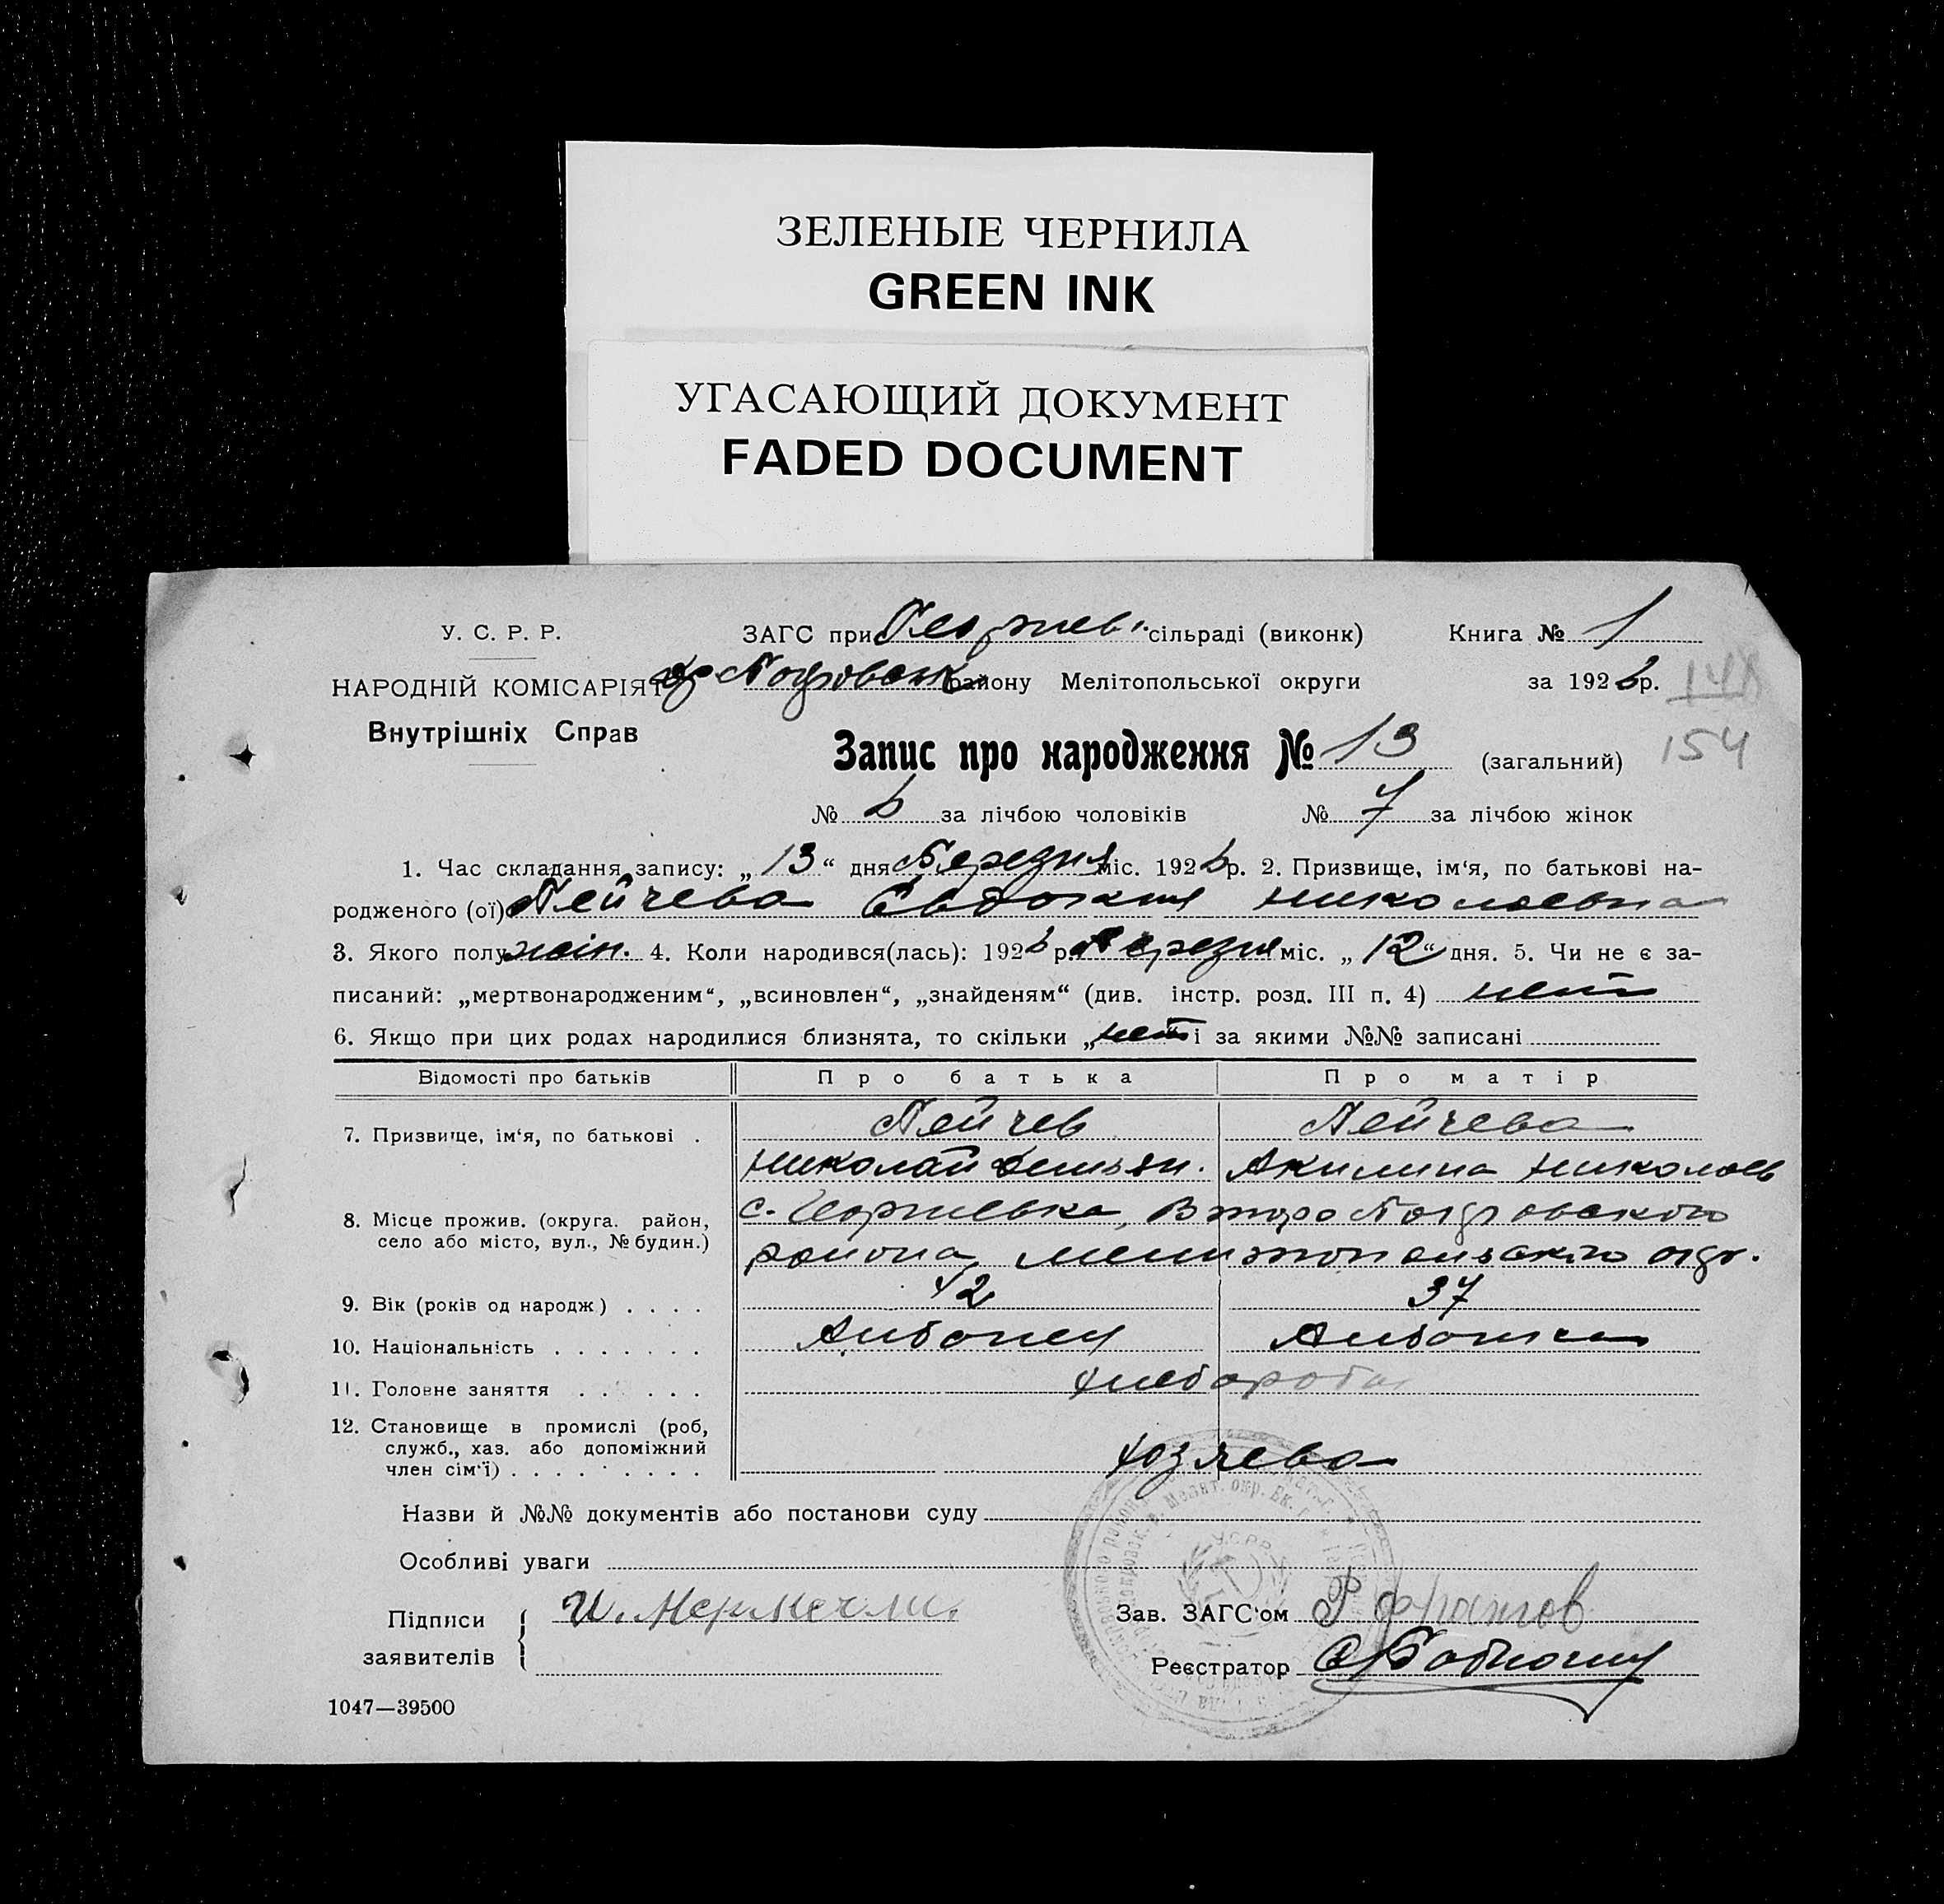 ЗЕЛЕНЫЕ ЧЕРНИЛА
GREEN INK
УГАСАЮЩИЙ ДОКУМЕНТ
FADED DOCUMENT
У. С. Р. Р.
ЗАГС при Георгиев. сільраді (виконк) Книга № 1
НАРОДНІЙ КОМІСАРІЯТ району Мелітопольської округи за 1926 р.
148
Внутрішніх Справ
Запис про народження № 13 (загальний)
154
№ 6 за лічбою чоловіків № 7 за лічбою жінок
1. Час складання запису: „13“ дня Березня міс. 1926 р. 2. Призвище, ім‘я, по батькові на-
родженого (ої) Пейчева Євдокия Николаевна
3. Якого полу жін. 4. Коли народився(лась): 1926 р. Березня міс. „12“ дня. 5. Чи не є за-
писаний: „мертвонародженим“, „всиновлен“, „знайденям“ (див. інстр. розд. III п. 4) нет
6. Якщо при цих родах народилися близнята, то скільки „нет“ і за якими №№ записані
Відомості про батьків Про батька Про матір
7. Призвище, ім‘я, по батькові . Пейчев Пейчева
Николай Демьян. Акилина Николаев
8. Місце прожив. (округа. район, село або місто, вул., № будин.) с. Георгиевка, Второ Покровского
района, Мелитопольского окр.
9. Вік (років од народж) . . . . 42 37
10. Національність . . . . . . . Албанец Албанка
11. Головне заняття . . . . . . хлебороба
12. Становище в промислі (роб,
служб., хаз. або допоміжний
член сім‘ї) . . . . . . . . . хозяева
Назви й №№ документів або постанови суду
Особливі уваги
Підписи
заявителів
Зав. ЗАГС‘ом
Реєстратор
У.С.Р.Р.
1047—39500